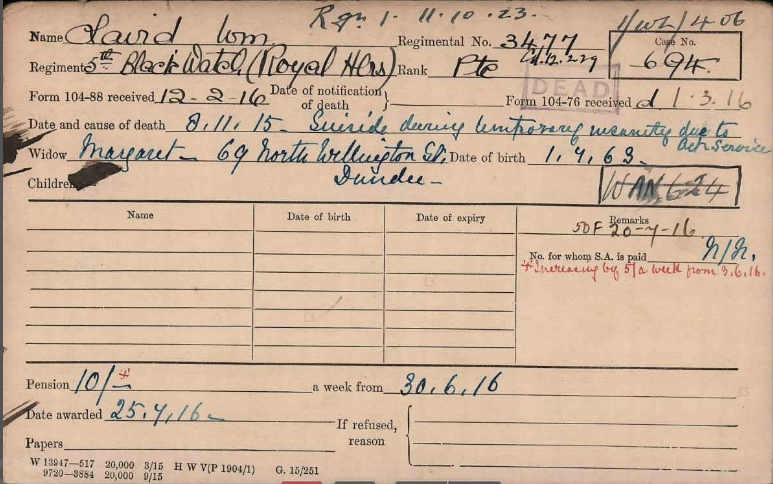 Rgn 1. 11.10.23.
1/WL/406
Name David Wm
Regimental No. 3477
Case No. 694
Regiment 5th Black Watch (Royal Hlrs) Rank Pte
DEAD
Form 104-88 received 12-2-16 Date of notification of death Form 104-76 received d 1.3.16
Date and cause of death 8.11.15- Suicide during temporary insanity due to Act. Service
Widow Margaret- 69 North Wellington St; Date of birth 1.7.63-
Dundee-
Children
Name Date of birth Date of expiry Remarks
SOF 20-7-16.
No. for whom S.A. is paid N/N.
+Increasing by 5/ a week from 3.6.16.
Pension 10/-* a week from 30.6.16
Date awarded 25.7.16-
If refused, reason
Papers
W 13947—517 20,000 3/15 H W V(P 1904/1) G. 15/251
9720—3884 20,000 9/15